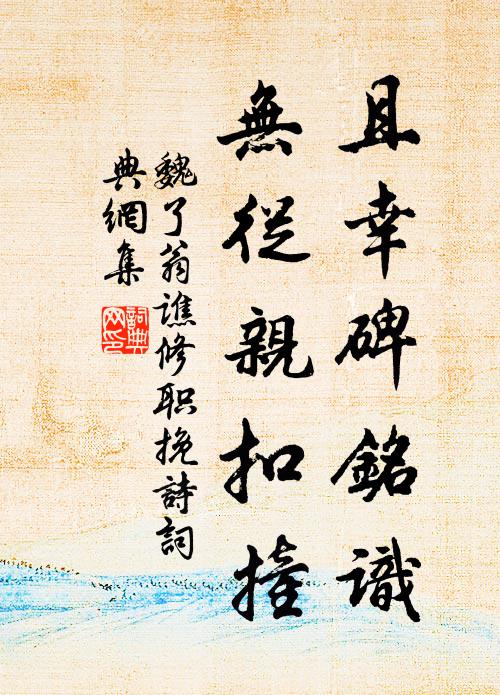 且幸碑銘識
無從親扣撞
魏了翁譙修职挽詩詞
典網集
詞典
网印